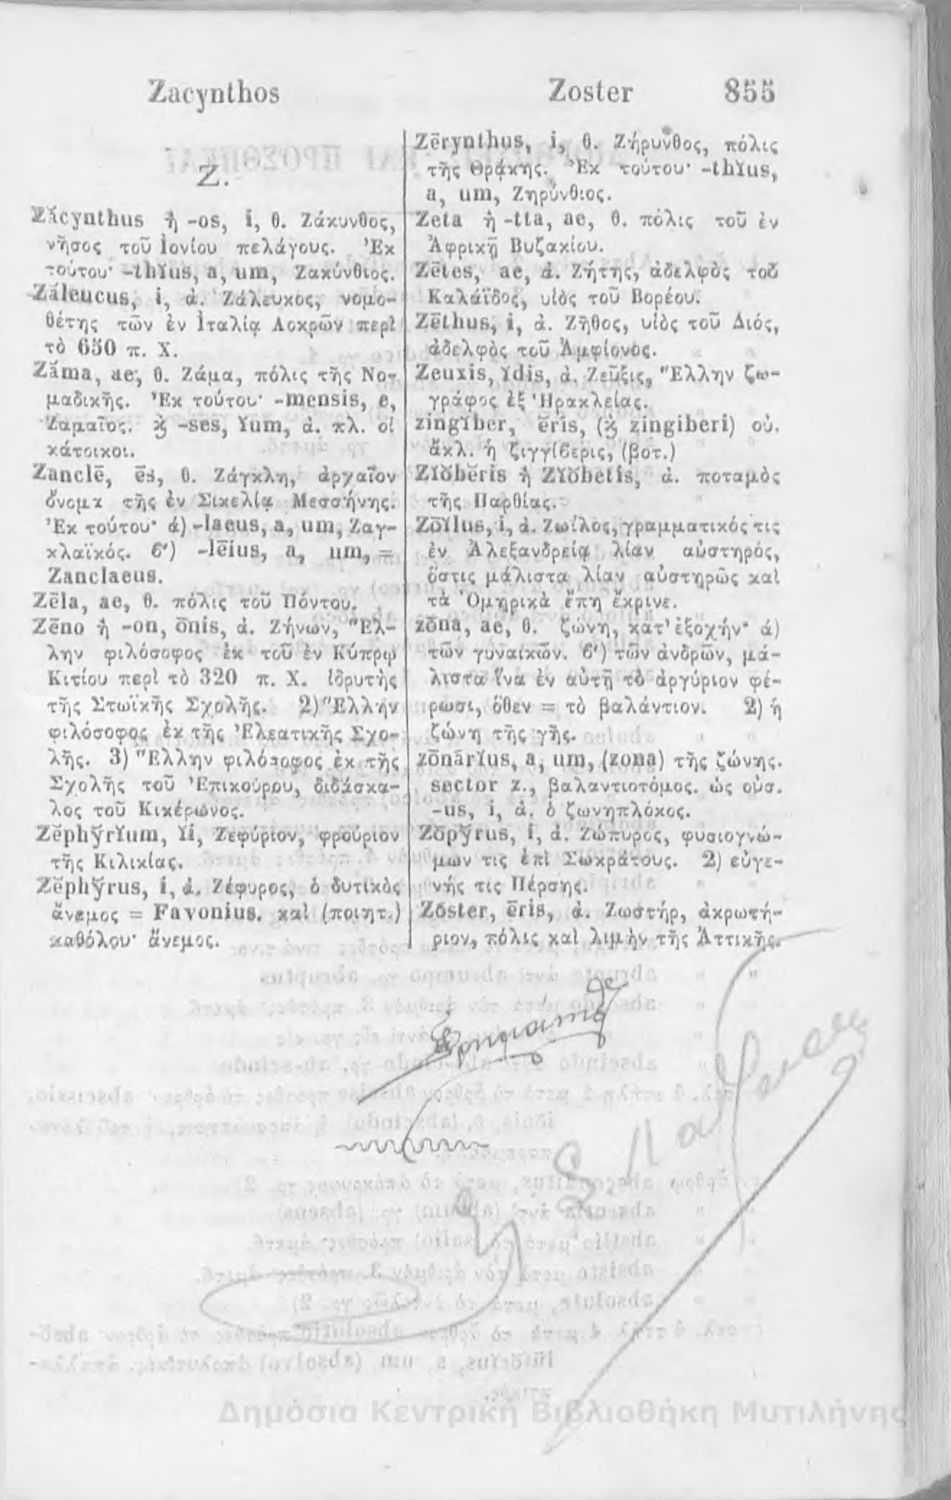 Zacynthos Zoster 855
Z.
Zăcynthus ἢ -os, i, θ. Ζάκυνθος,
νῆσος τοῦ Ἰονίου πελάγους. Ἐκ
τούτου· -thĭus, a, um, Ζακύνθιος.
Zăleucus, i, ἀ. Ζάλευκος, νομο-
θέτης τῶν ἐν Ἰταλίᾳ Λοκρῶν περὶ
τὸ 650 π. Χ.
Zăma, ae, θ. Ζάμα, πόλις τῆς Νο-
μαδικῆς. Ἐκ τούτου· -mensis, e,
Ζαμαῖος. ϗ -ses, ĭum, ἀ. πλ. οἱ
κάτοικοι.
Zanclē, ēs, θ. Ζάγκλη, ἀρχαῖον
ὄνομα τῆς ἐν Σικελίᾳ Μεσσήνης.
Ἐκ τούτου· ά) -laeus, a, um, Ζαγ-
κλαϊκός. ϐ') -lēius, a, um, =
Zanclaeus.
Zēla, ae, θ. πόλις τοῦ Πόντου.
Zēno ἢ -on, ōnis, ἀ. Ζήνων, Ἕλ-
λην φιλόσοφος ἐκ τοῦ ἐν Κύπρῳ
Κιτίου περὶ τὸ 320 π. Χ. ἱδρυτὴς
τῆς Στωϊκῆς Σχολῆς. 2) Ἕλλην
φιλόσοφος ἐκ τῆς Ἐλεατικῆς Σχο-
λῆς. 3) Ἕλλην φιλόσοφος ἐκ τῆς
Σχολῆς τοῦ Ἐπικούρου, διδάσκα-
λος τοῦ Κικέρωνος.
Zĕphy̆rĭum, ĭi, Ζεφύριον, φρούριον
τῆς Κιλικίας.
Zĕphy̆rus, i, ἀ. Ζέφυρος, ὁ δυτικὸς
ἄνεμος = Favonius. καὶ (ποιητ.)
καθόλου· ἄνεμος.
Zērynthus, i, θ. Ζήρυνθος, πόλις
τῆς Θρᾴκης. Ἐκ τούτου· -thĭus,
a, um, Ζηρύνθιος.
Zeta ἢ -tta, ae, θ. πόλις τοῦ ἐν
Ἀφρικῇ Βυζακίου.
Zētes, ae, ἀ. Ζήτης, ἀδελφὸς τοῦ
Καλάϊδος, υἱὸς τοῦ Βορέου.
Zēthus, i, ἀ. Ζῆθος, υἱὸς τοῦ Διός,
ἀδελφὸς τοῦ Ἀμφίονος.
Zeuxis, ĭdis, ἀ. Ζεῦξις, Ἕλλην ζω-
γράφος ἐξ Ἡρακλείας.
zingĭber, ĕris, (ϗ zingiberi) οὐ.
ἄκλ. ἡ ζιγγίϐερις, (βοτ.)
Zĭŏbĕris ἢ Zĭŏbetis, ἀ. ποταμὸς
τῆς Παρθίας.
Zōĭlus, i, ἀ. Ζωίλος, γραμματικός τις
ἐν Ἀλεξανδρείᾳ λίαν αὐστηρός,
ὅστις μάλιστα λίαν αὐστηρῶς καὶ
τὰ Ὁμηρικὰ ἔπη ἔκρινε.
zōna, ae, θ. ζώνη, κατ' ἐξοχήν· ά)
τῶν γυναικῶν. ϐ') τῶν ἀνδρῶν, μά-
λιστα ἵνα ἐν αὐτῇ τὸ ἀργύριον φέ-
ρωσι, ὅθεν = τὸ βαλάντιον. 2) ἡ
ζώνη τῆς γῆς.
zōnārĭus, a, um, (zona) τῆς ζώνης.
sector z., βαλαντιοτόμος. ὡς οὐσ.
-us, i, ἀ. ὁ ζωνηπλόκος.
Zōpy̆rus, i, ἀ. Ζώπυρος, φυσιογνώ-
μων τις ἐπὶ Σωκράτους. 2) εὐγε-
νής τις Πέρσης.
Zōster, ēris, ἀ. Ζωστήρ, ἀκρωτή-
ριον, πόλις καὶ λιμὴν τῆς Ἀττικῆς.
Δημόσια Κεντρική Βιβλιοθήκη Μυτιλήνης